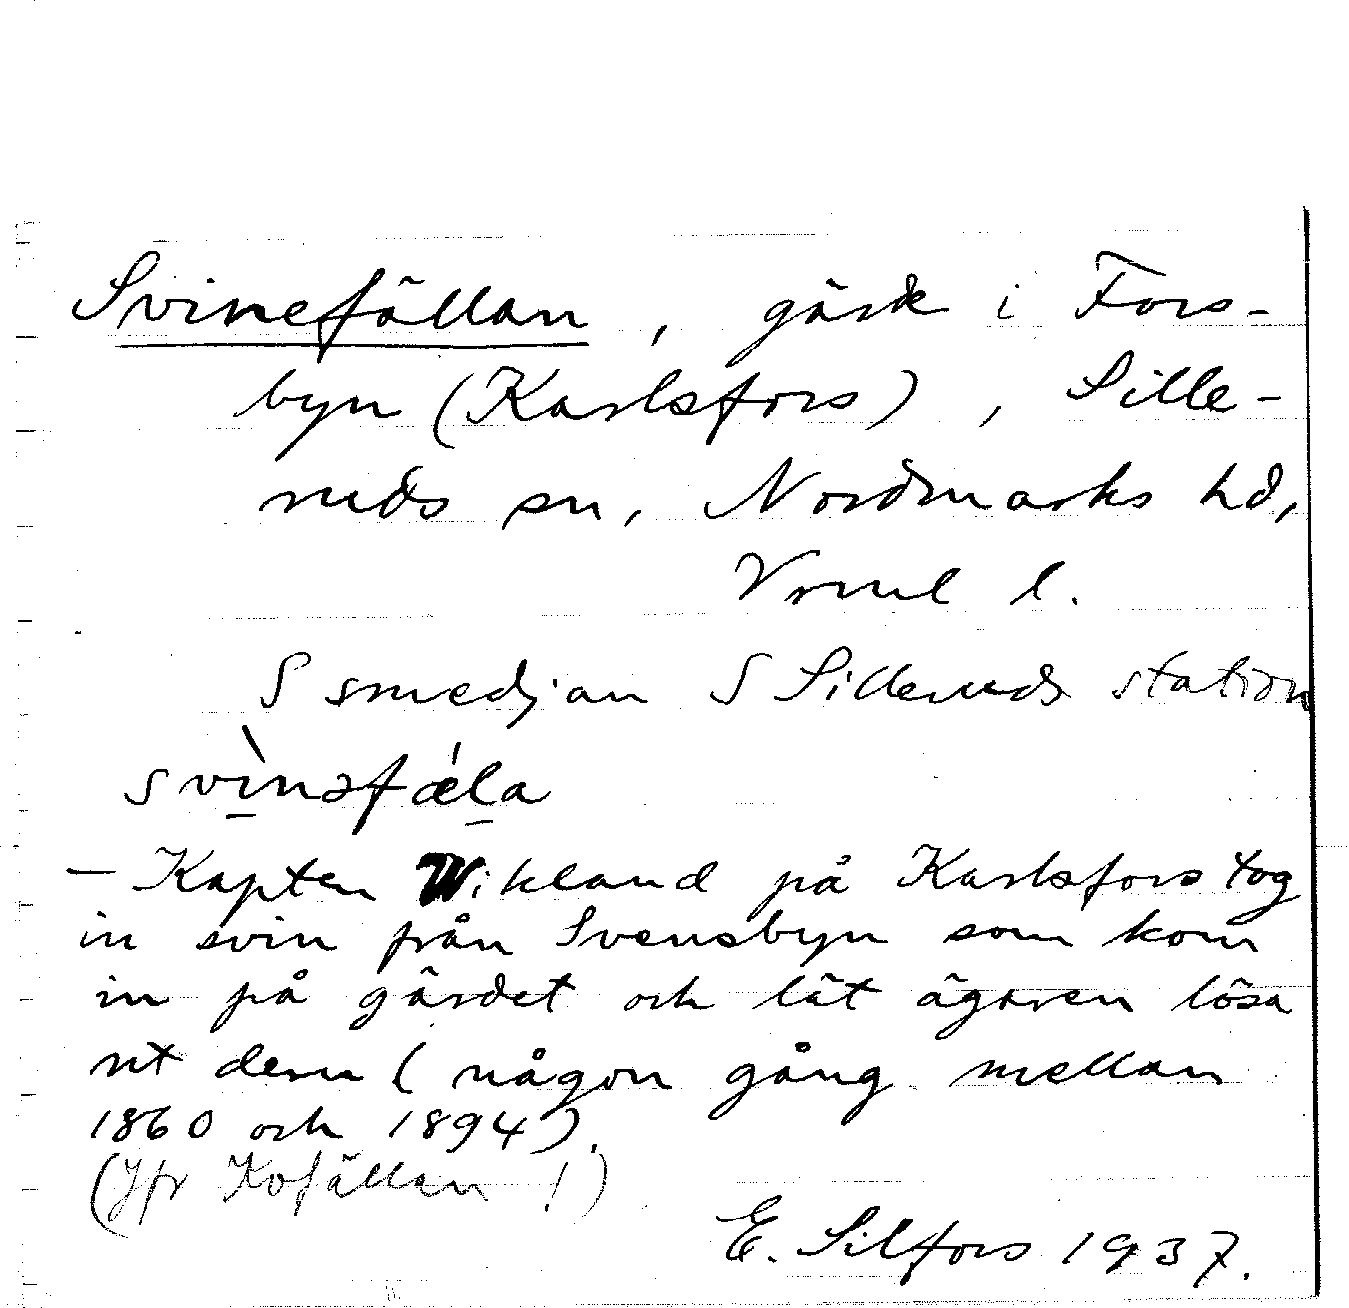 Svinefällan, gärde i Fors-
byn (Karlsfors), Sille-
ruds sn, Nordmarks hd,
Vrml l.
S smedjan S Silleruds station
svìnəfǽla
– Kapten Wikland på Karlsfors tog
in svin från Svensbyn som kom
in på gärdet och lät ägaren lösa
ut dem (någon gång mellan
1860 och 1894).
(Jfr Kofällan !)
E. Silfors 1937.